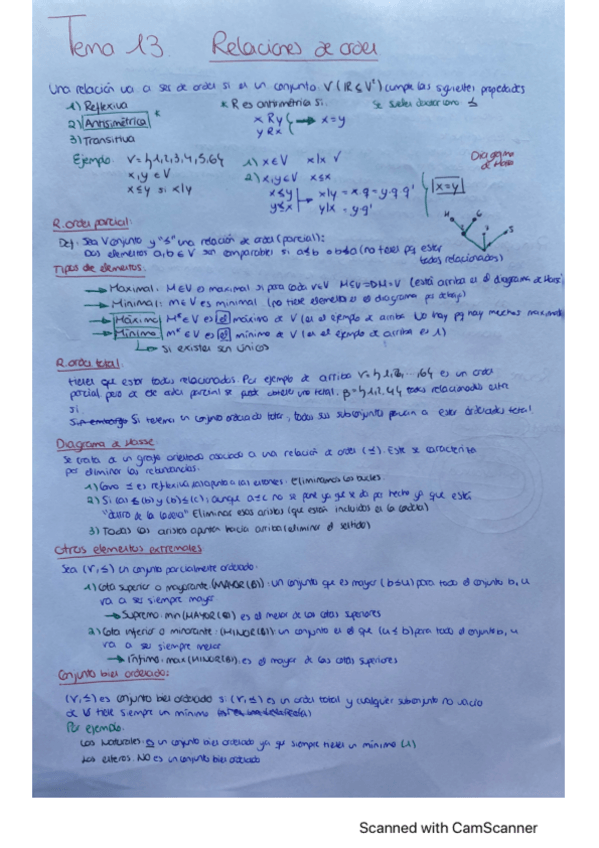 Tema 13 Relaciones de orden
Una relación va a ser de orden si en un conjunto V (R ⊆ V²) cumple las siguientes propiedades
1) Reflexiva * R es antisimétrica si: Se suele denotar como ≤
2) Antisimétrica * x R y
y R x → x=y
3) Transitiva
Diagrama de Hasse
Ejemplo: V={1,2,3,4,5,6} 1) x∈V x|x ✓
x,y ∈ V 2) x,y∈V x≤x
x≤y si x|y x≤y
y≤x → x|y = x·q = y·q·q'
y|x = y·q' |x=y|
R. orden parcial:
Def: Sea V conjunto y "≤" una relación de orden (parcial):
Dos elementos a,b ∈ V son comparables si a≤b o b≤a (no tienen pq estar
todos relacionados)
Tipos de elementos:
→ Maximal: M∈V es maximal si para cada v∈V M≤v=>M=v (está arriba en el diagrama de Hasse)
→ Minimal: m∈V es minimal (no tiene elementos en el diagrama por debajo)
→ Máximo: M*∈V es el máximo de V (en el ejemplo de arriba no hay pq hay muchos maximales)
→ Mínimo: m*∈V es el mínimo de V (en el ejemplo de arriba es 1)
→ Si existen son únicos
R. orden total:
tienen que estar todos relacionados. Por ejemplo de arriba V={1,2,...,6} es un orden
parcial, pero de ese orden parcial se puede obtener uno total, B={1,2,4} todos relacionados entre
sí.
Sin embargo Si tenemos un conjunto ordenado total, todos sus subconjuntos pasarían a estar ordenados total.
Diagrama de Hasse
Se trata de un grafo orientado asociado a una relación de orden (≤). Este se caracteriza
por eliminar las redundancias.
1) Como ≤ es reflexiva Eliminamos los bucles.
2) Si (a) ≤ (b) y (b) ≤ (c); aunque a≤c no se pone ya que se da por hecho ya que está
"dentro de la cadena" Eliminar esas aristas (que están incluidas en la cadena)
3) Todas las aristas apuntan hacia arriba (eliminar el sentido)
Otros elementos extremales
Sea (V,≤) un conjunto parcialmente ordenado:
1) Cota superior o mayorante (MAYOR(B)): un conjunto que es mayor (b≤u) para todo el conjunto b, u
va a ser siempre mayor
→ Supremo: min(MAYOR(B)) es el menor de las cotas superiores
2) Cota inferior o minorante: (MINOR(B)): un conjunto es el que (u≤b) para todo el conjunto b, u
va a ser siempre menor
→ Ínfimo: max(MINOR(B)): es el mayor de las cotas superiores
Conjunto bien ordenado:
(V,≤) es conjunto bien ordenado si (V,≤) es un orden total y cualquier subconjunto no vacío
de V tiene siempre un mínimo
Por ejemplo:
Los Naturales: es un conjunto bien ordenado ya que siempre tienen un mínimo (1)
Los enteros: NO es un conjunto bien ordenado
Scanned with CamScanner